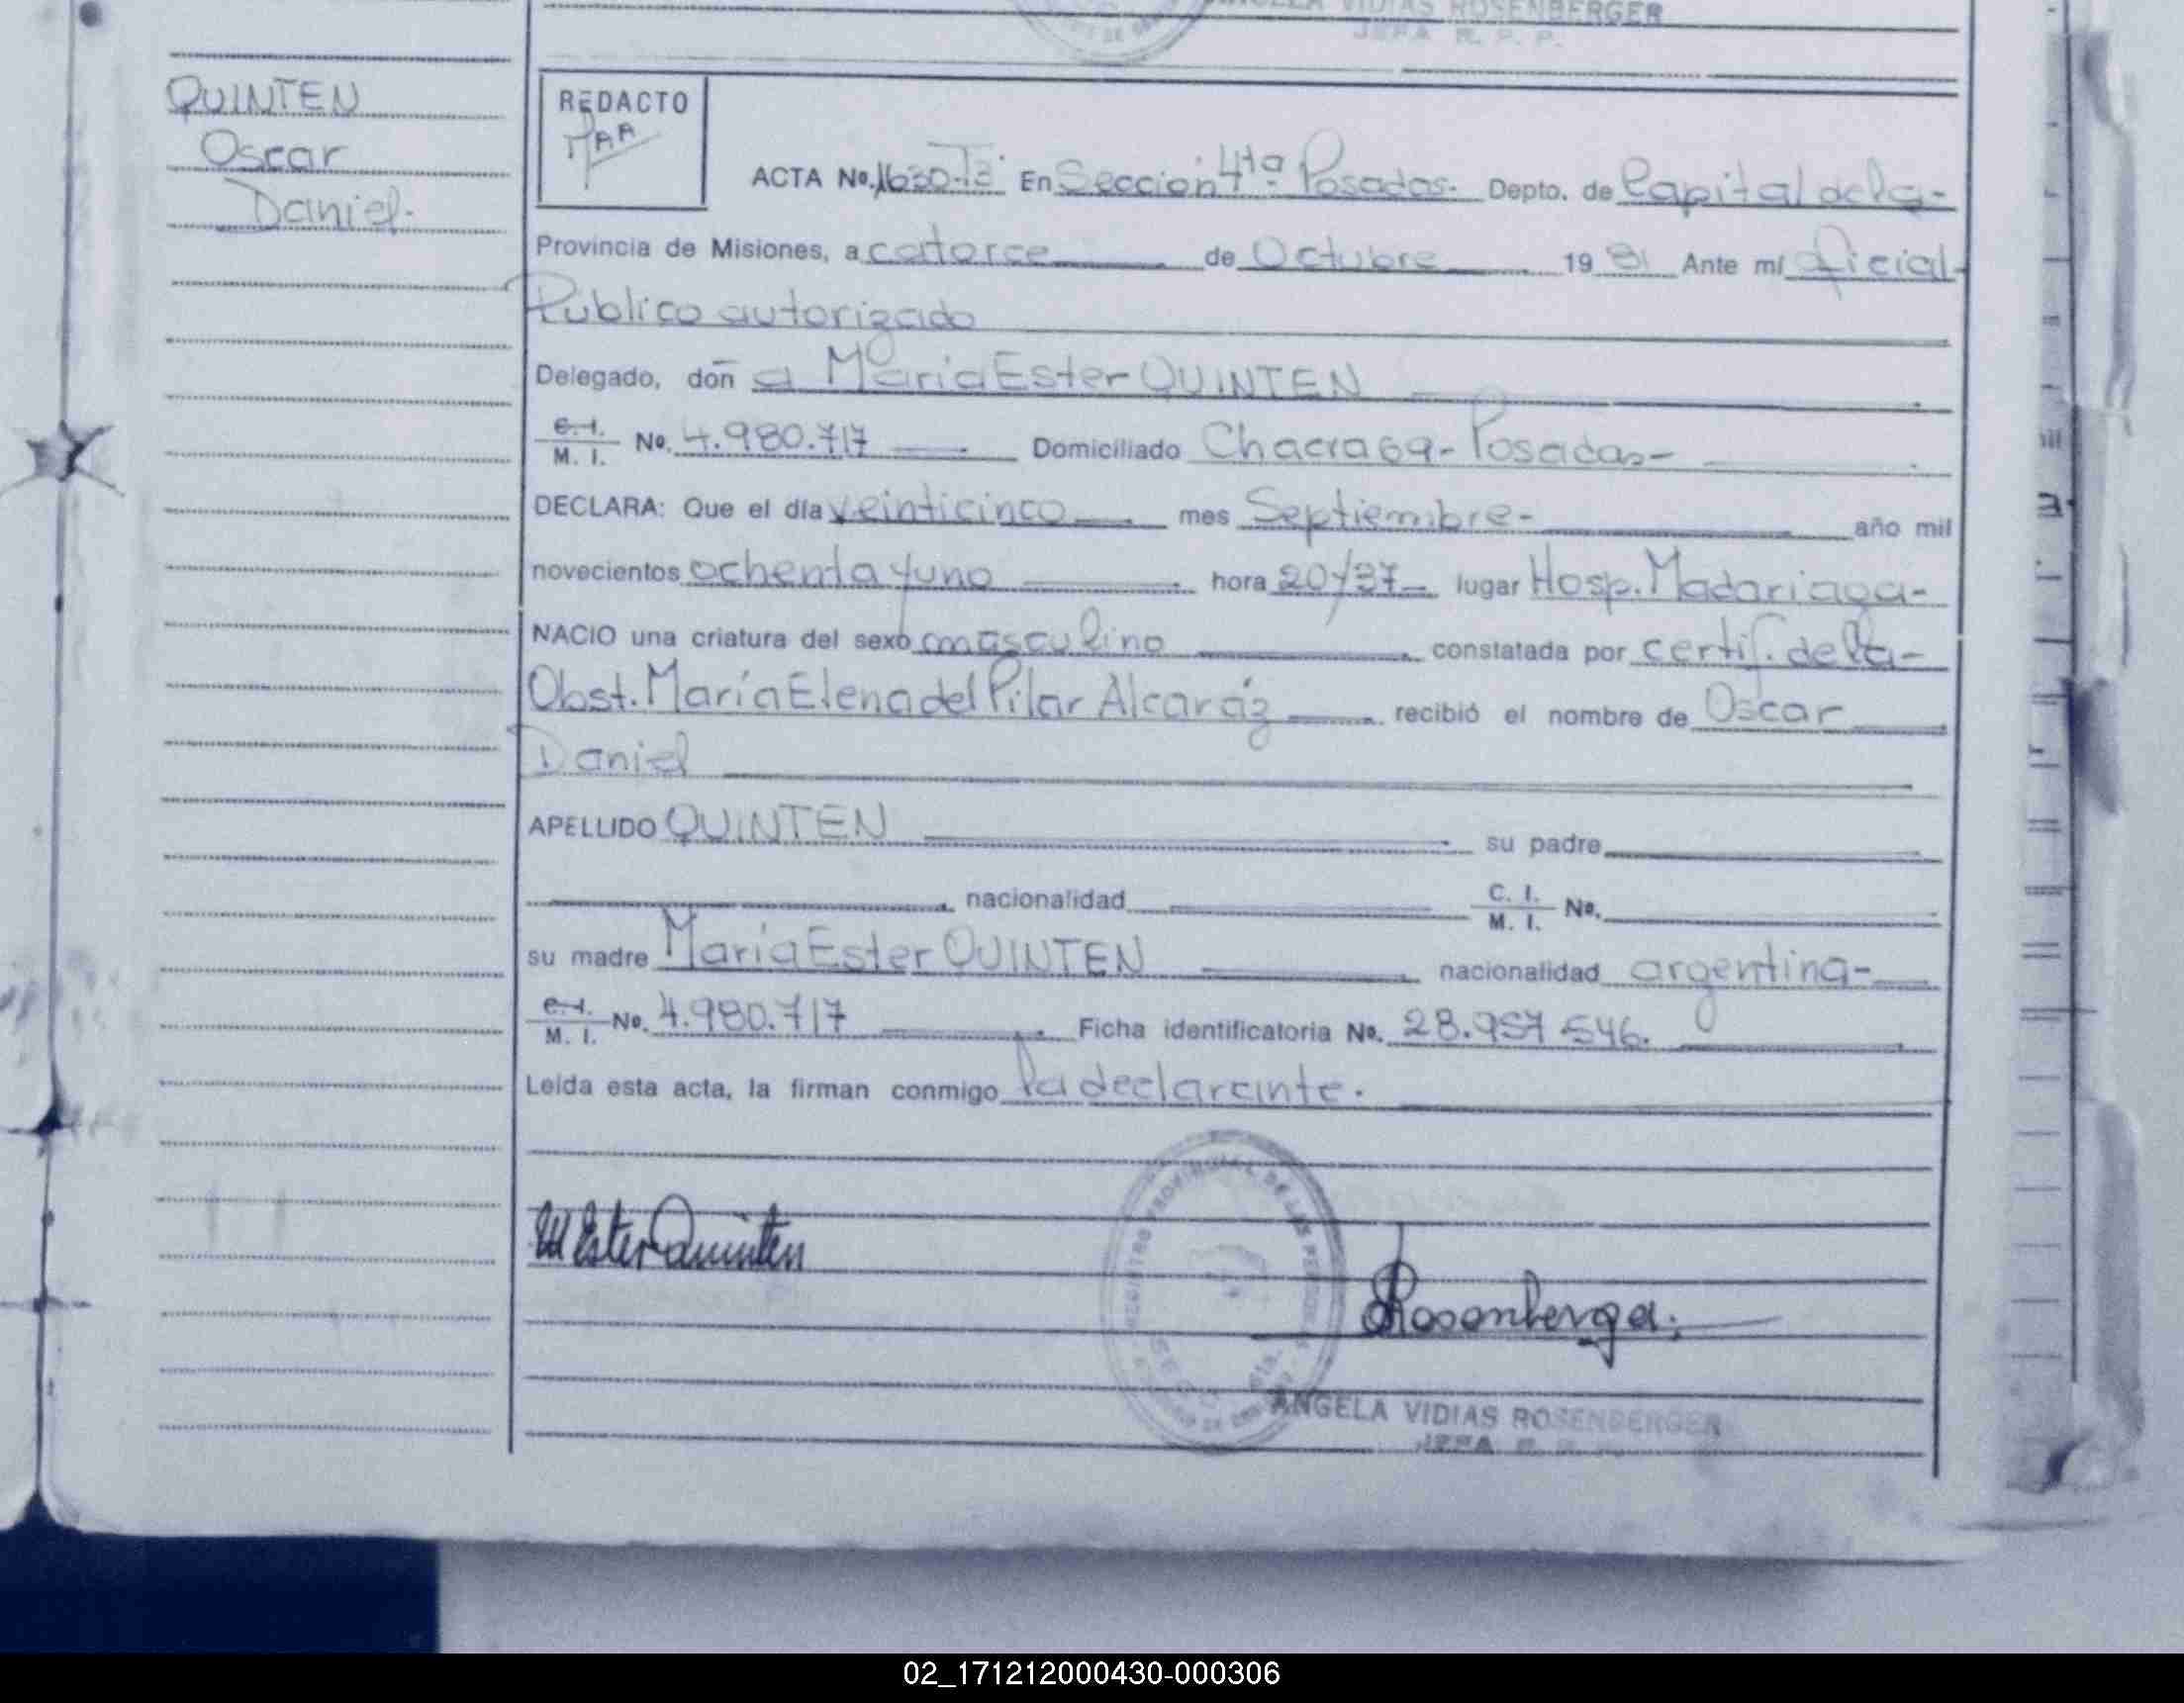 ANGELA VIDIAS ROSENBERGER
JEFA R. P. P.
QUINTEN
Oscar
Daniel.
REDACTO
ACTA No. 1630-T3- En Sección 4ta. Posadas. Depto. de Capital de la-
Provincia de Misiones, a catorce de Octubre 19 81 Ante mí Oficial-
Publico autorizado
Delegado, don̄ a María Ester QUINTEN
C. I.
M. I. No. 4.980.717 Domiciliado Chacra 69- Posadas-
DECLARA: Que el día veinticinco mes Septiembre- año mil
novecientos ochenta y uno hora 20y37- lugar Hosp. Madariaga-
NACIO una criatura del sexo masculino constatada por certif. de la-
Obst. María Elena del Pilar Alcaráz recibió el nombre de Oscar
Daniel
APELLIDO QUINTEN su padre
nacionalidad C. I.
M. I. No.
su madre María Ester QUINTEN nacionalidad argentina-
C. I.
M. I. No. 4.980.717 Ficha identificatoria No. 28.957.546.
Leída esta acta, la firman conmigo la declarante.
M Ester Quinten
REGISTRO PROVINCIAL DE LAS PERSONAS
Rosenberger
ANGELA VIDIAS ROSENBERGER
JEFA
02_171212000430-000306